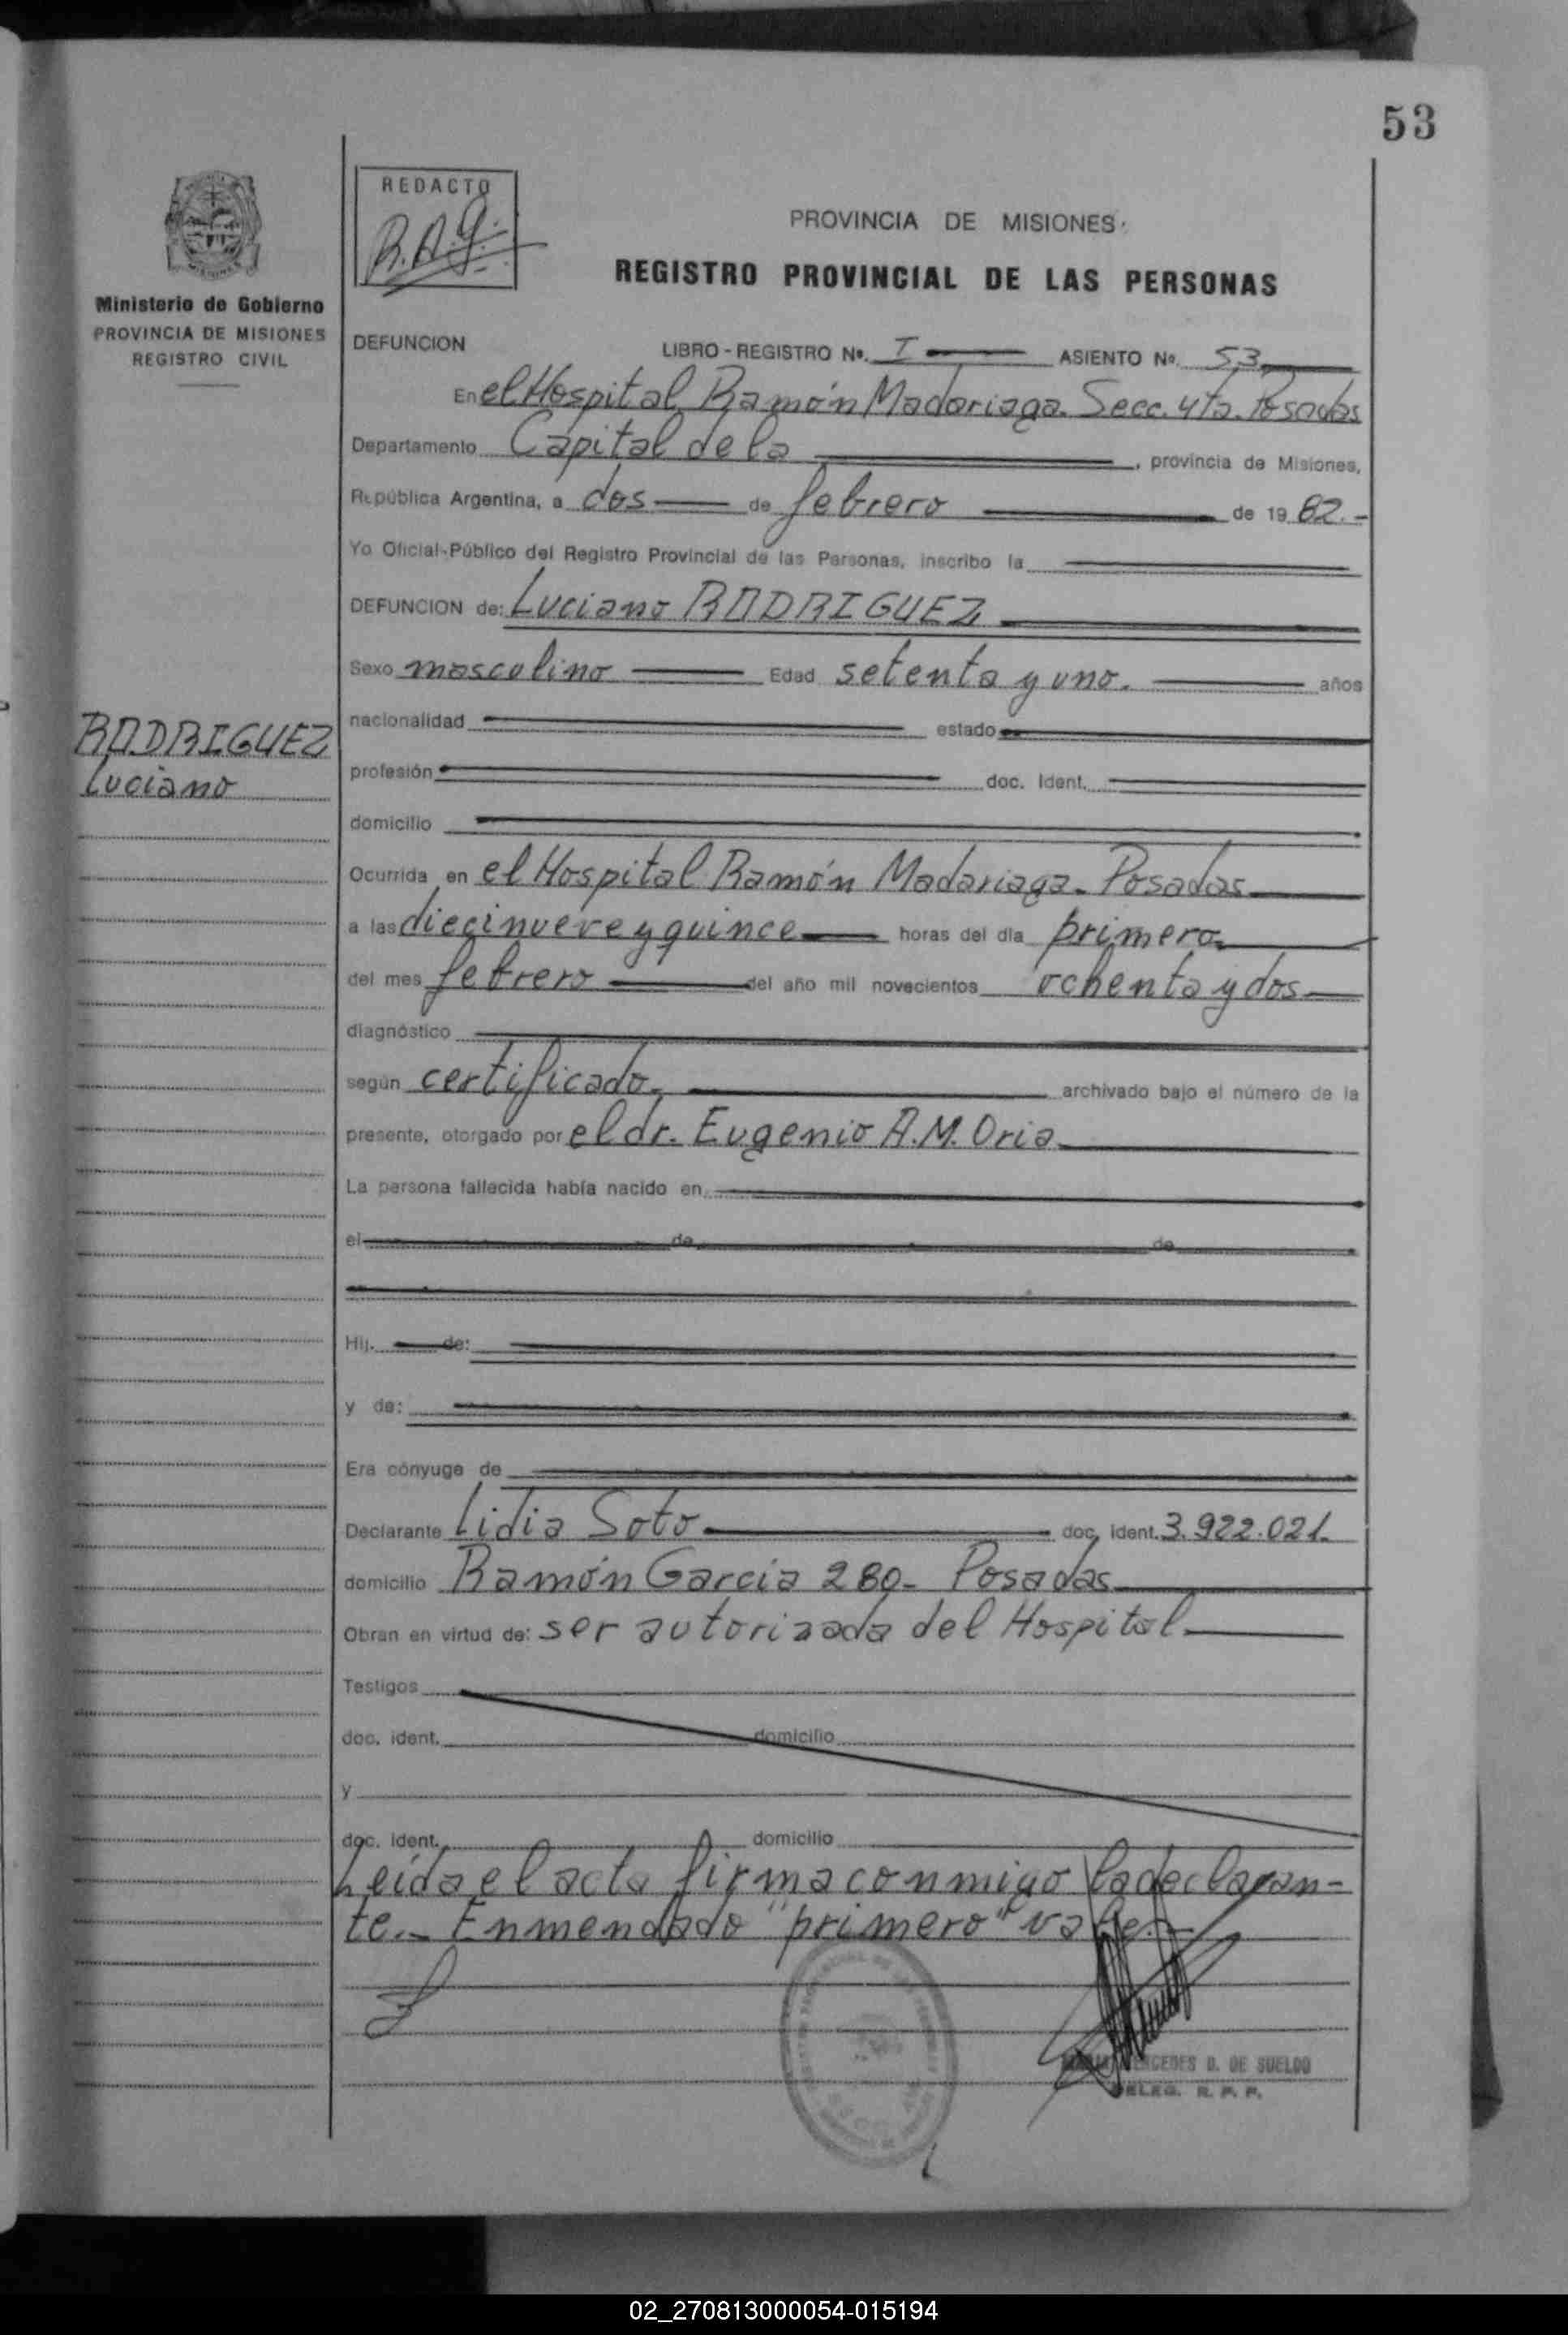 53
REDACTO
R.A.G.
PROVINCIA DE MISIONES
REGISTRO PROVINCIAL DE LAS PERSONAS
MISIONES
Ministerio de Gobierno
PROVINCIA DE MISIONES
REGISTRO CIVIL
RODRIGUEZ
Luciano
DEFUNCION LIBRO - REGISTRO Nº. I ASIENTO Nº. 53
En el Hospital Ramón Madariaga. Secc. 4ta. Posadas
Departamento Capital de la , provincia de Misiones,
República Argentina, a dos de febrero de 19 82.-
Yo Oficial Público del Registro Provincial de las Personas, inscribo la
DEFUNCION de: Luciano RODRIGUEZ
Sexo masculino Edad setenta y uno. años
nacionalidad estado
profesión doc. ident.
domicilio
Ocurrida en el Hospital Ramón Madariaga. Posadas
a las diecinueve y quince horas del día primero
del mes febrero del año mil novecientos ochenta y dos
diagnóstico
según certificado. archivado bajo el número de la
presente, otorgado por el dr. Eugenio A.M. Oria
La persona fallecida había nacido en
el de de
Hij. de:
y de:
Era cónyuge de
Declarante Lidia Soto doc. ident. 3.922.021.
domicilio Ramón Garcia 280- Posadas
Obran en virtud de: ser autorizada del Hospital
Testigos
doc. ident. domicilio
y
doc. ident. domicilio
Leída el acta firma conmigo la declaran-
te.- Enmendado "primero" vale.-
MERCEDES B. DE SUELDO
DELEG. R. P. P.
02_270813000054-015194